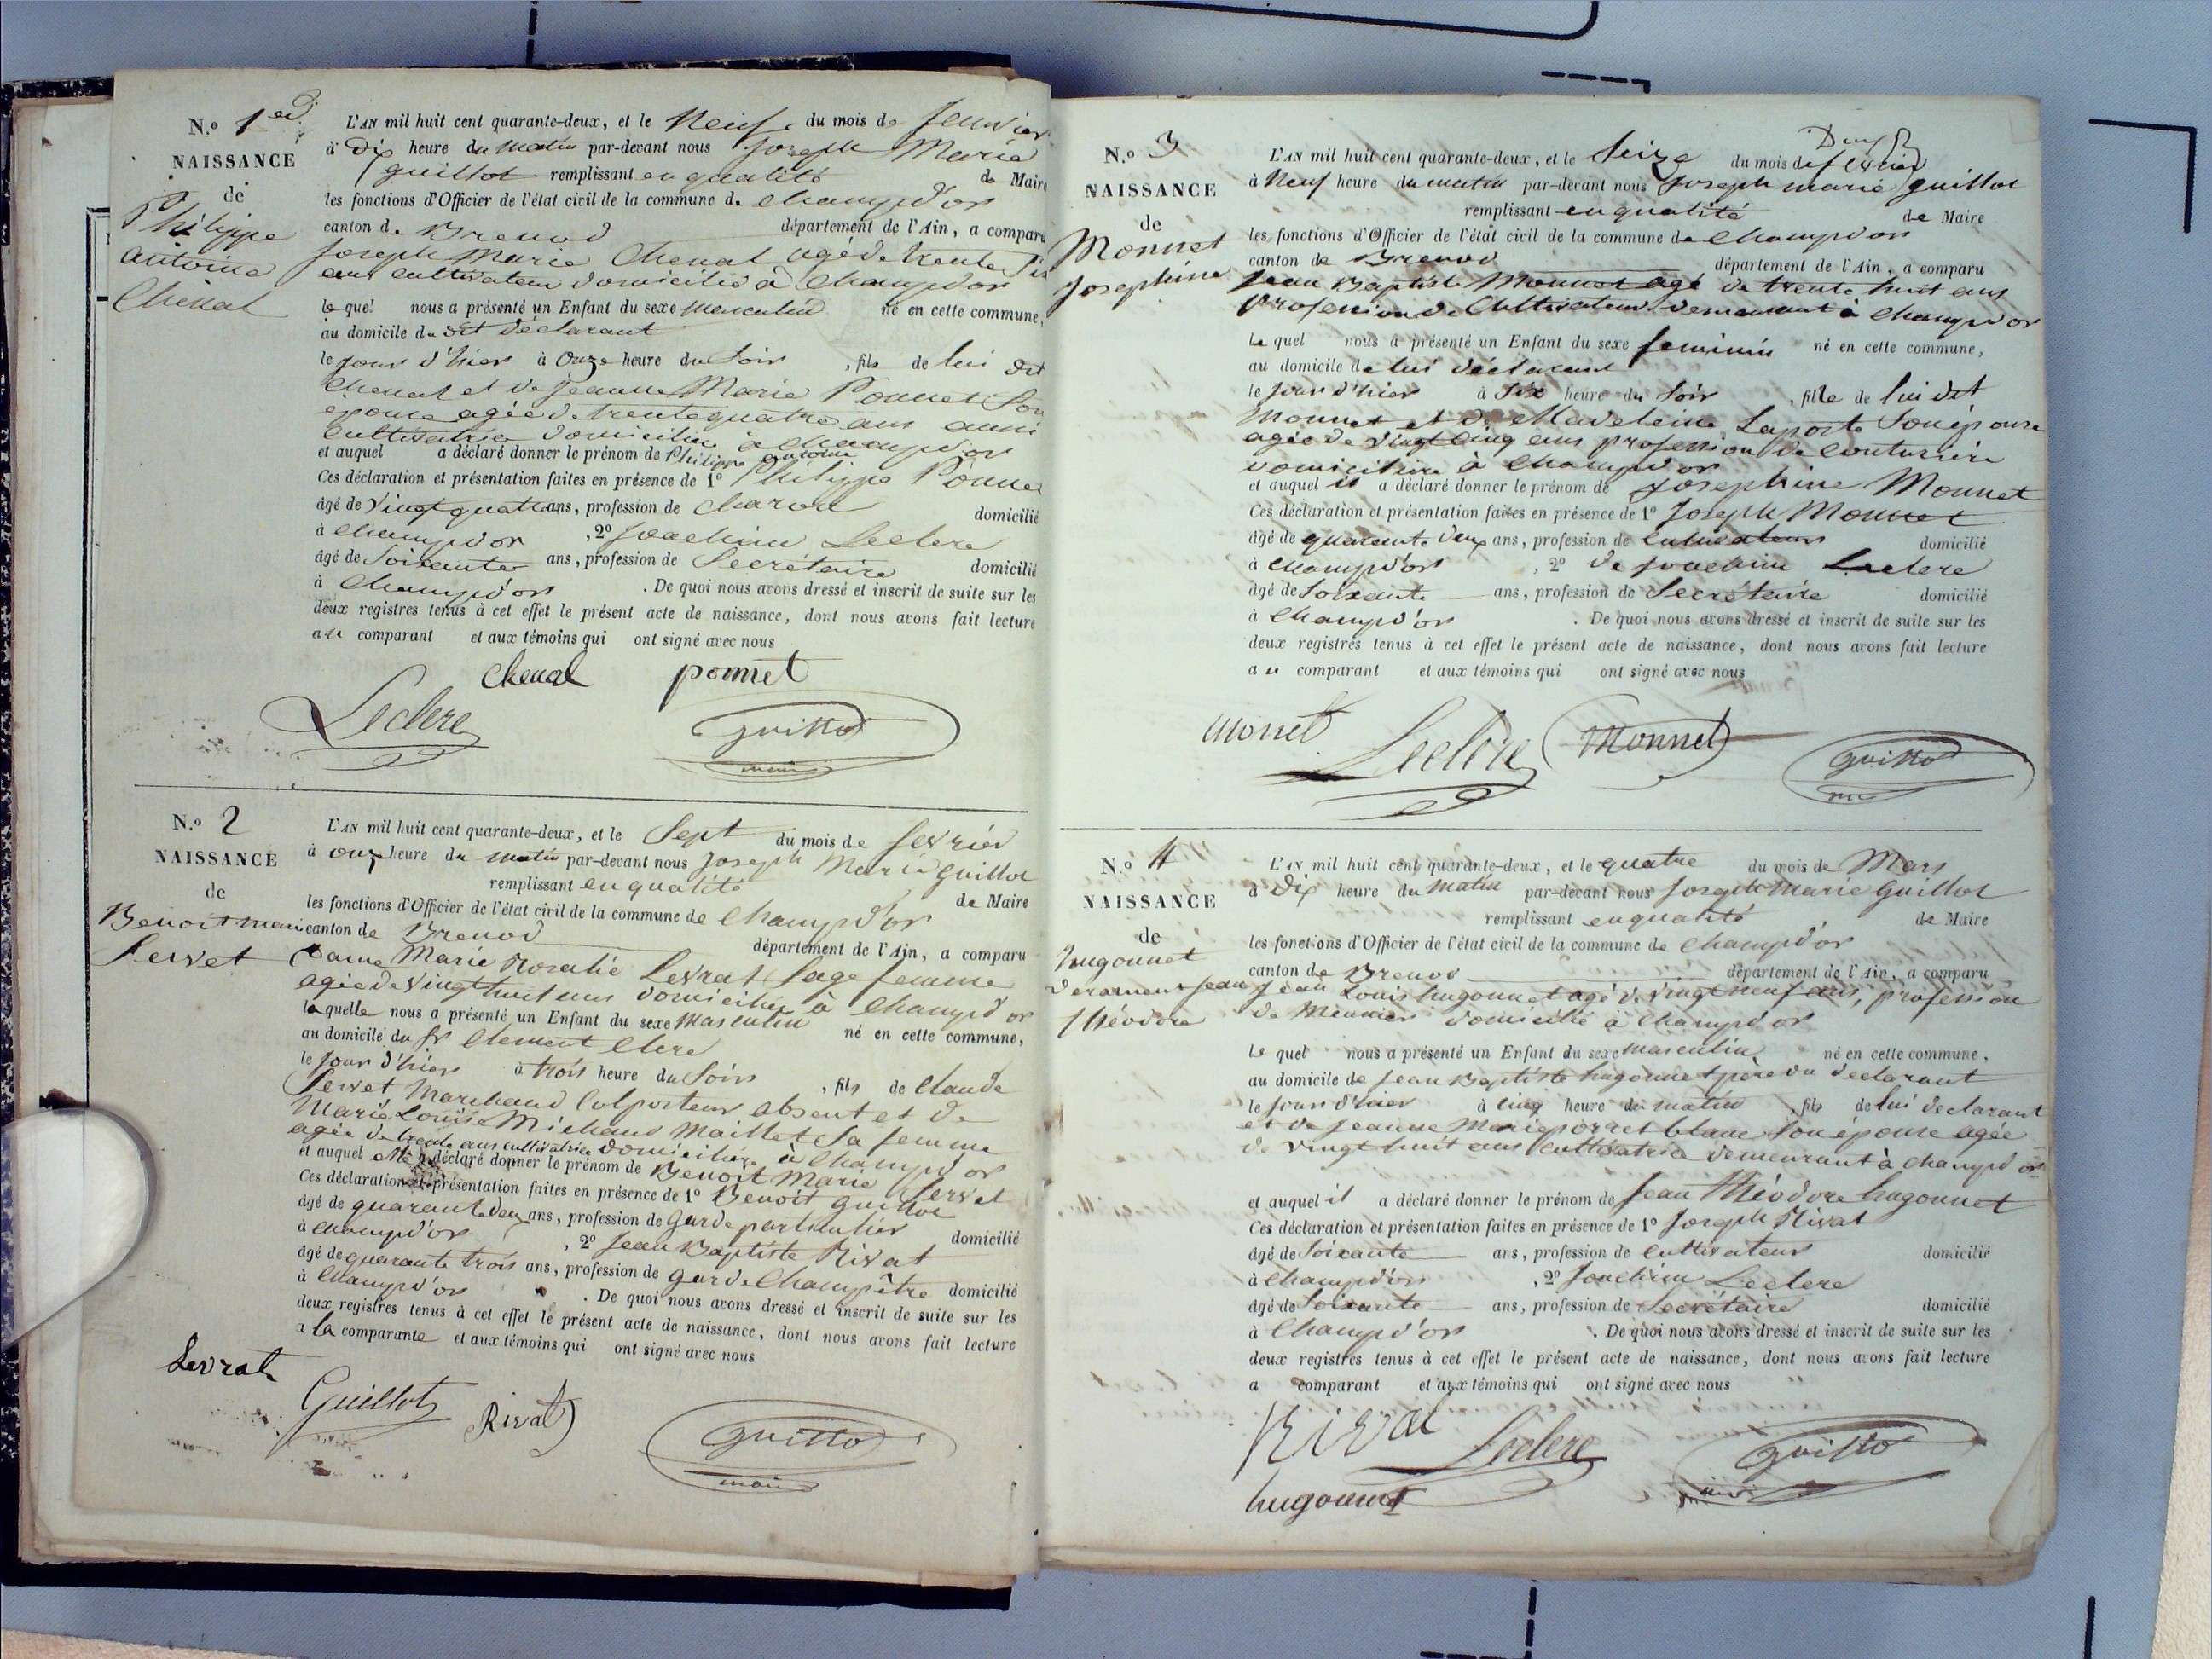 N.o 1er
NAISSANCE
de
Philippe
antoine
Chenal
L'AN mil huit cent quarante-deux, et le Neuf du mois de Jenvier
à Dix heure du matin par-devant nous Joseph Marie
guillot remplissant en qualité de Maire
les fonctions d'Officier de l'état civil de la commune de Champd'or
canton de Brenod département de l'Ain, a comparu
Joseph Marie Chenal agé de trente Six
ans cultivateur domicilié à Champd'or
le quel nous a présenté un Enfant du sexe masculin né en cette commune,
au domicile du dit déclarant
le jour d'hier à Onze heure du Soir, fils de lui dit
Chenal et de Jeanne Marie Ponnet Son
epouse agée de trente quatre ans aussi
Cultivatrice domiciliée à champd'or
et auquel a déclaré donner le prénom de Philippe antoine
Ces déclaration et présentation faites en présence de 1o Philippe Ponnet
âgé de Vingt quatre ans, profession de Charon domicilié
à Champd'or, 2o Joachim Leclere
âgé de Soixante ans, profession de Secrétaire domicilié
à Champd'or. De quoi nous avons dressé et inscrit de suite sur les
deux registres tenus à cet effet le présent acte de naissance, dont nous avons fait lecture
au comparant et aux témoins qui ont signé avec nous
Chenal ponnet
Leclere guillot
maire
N.o 2
NAISSANCE
de
Benoit marie
Servet
L'AN mil huit cent quarante-deux, et le Sept du mois de fevrier
à onze heure du matin par-devant nous Joseph Marie guillot
remplissant en qualité de Maire
les fonctions d'Officier de l'état civil de la commune de Champd'or
canton de Brenod département de l'Ain, a comparu
Dame Marie Rosalie Levrat Sage femme
agée de Vingt huit ans domiciliée à Champd'or
laquelle nous a présenté un Enfant du sexe masculin né en cette commune,
au domicile du Sr Clement Clere
le jour d'hier à trois heure du Soir, fils de Claude
Servet Marchand Colporteur absent et de
Marie Louise Michaud Maillet Sa femme
agée de trente ans cultivatrice domiciliée à Champd'or
et auquel elle a déclaré donner le prénom de Benoit Marie Servet
Ces déclaration et présentation faites en présence de 1o Benoit guillot
âgé de quarante deux ans, profession de garde particulier domicilié
à Champd'or, 2o Jean Baptiste Rivat
âgé de quarante trois ans, profession de garde Champêtre domicilié
à Champd'or. De quoi nous avons dressé et inscrit de suite sur les
deux registres tenus à cet effet le présent acte de naissance, dont nous avons fait lecture
a la comparante et aux témoins qui ont signé avec nous
Levrat
Guillot Rivat guillot
maire
N.o 3
NAISSANCE
de
Monnet
Josephine
L'AN mil huit cent quarante-deux, et le Seize du mois de fevrier
à Neuf heure du matin par-devant nous Joseph marie guillot
remplissant en qualité de Maire
les fonctions d'Officier de l'état civil de la commune de Champd'or
canton de Brenod département de l'Ain, a comparu
Jean Baptiste Monnet agé de trente huit ans
Profession de Cultivateur demeurant à Champd'or
Le quel nous a présenté un Enfant du sexe feminin né en cette commune,
au domicile de lui déclarant
le jour d'hier à Six heure du Soir, fille de lui dit
Monnet et de Madeleine Laporte Son épouse
agée de Vingt cinq ans profession de Couturiere
domiciliée à Champd'or
et auquel il a déclaré donner le prénom de Josephine Monnet
Ces déclaration et présentation faites en présence de 1o Joseph Monnet
âgé de quarante deux ans, profession de Cultivateur domicilié
à Champd'or, 2o de Joachim Leclere
âgé de Soixante ans, profession de Secrétaire domicilié
à Champd'or. De quoi nous avons dressé et inscrit de suite sur les
deux registres tenus à cet effet le présent acte de naissance, dont nous avons fait lecture
au comparant et aux témoins qui ont signé avec nous
monet Leclere Monnet guillot
N.o 4
NAISSANCE
de
hugonnet
Jean
théodore
L'AN mil huit cent quarante-deux, et le quatre du mois de Mars
à Dix heure du matin par-devant nous Joseph Marie Guillot
remplissant en qualité de Maire
les fonctions d'Officier de l'état civil de la commune de Champd'or
canton de Brenod département de l'Ain, a comparu
Jean Louis hugonnet agé de Vingt neuf ans, profession
de Meunier domicilié à Champd'or
Le quel nous a présenté un Enfant du sexe masculin né en cette commune,
au domicile de Jean Baptiste hugonnet père du declarant
le Jour d'hier à Cinq heure du matin, fils de lui declarant
et de Jeanne Marie porret blanc Son épouse agée
de Vingt huit ans Cultivatrice demeurant à Champd'or
et auquel il a déclaré donner le prénom de Jean théodore hugonnet
Ces déclaration et présentation faites en présence de 1o Joseph Rivat
âgé de Soixante ans, profession de Cultivateur domicilié
à Champd'or, 2o Joachim Leclere
âgé de Soixante ans, profession de Secrétaire domicilié
à Champd'or. De quoi nous avons dressé et inscrit de suite sur les
deux registres tenus à cet effet le présent acte de naissance, dont nous avons fait lecture
a comparant et aux témoins qui ont signé avec nous
Rival Leclere guillot
hugonnet